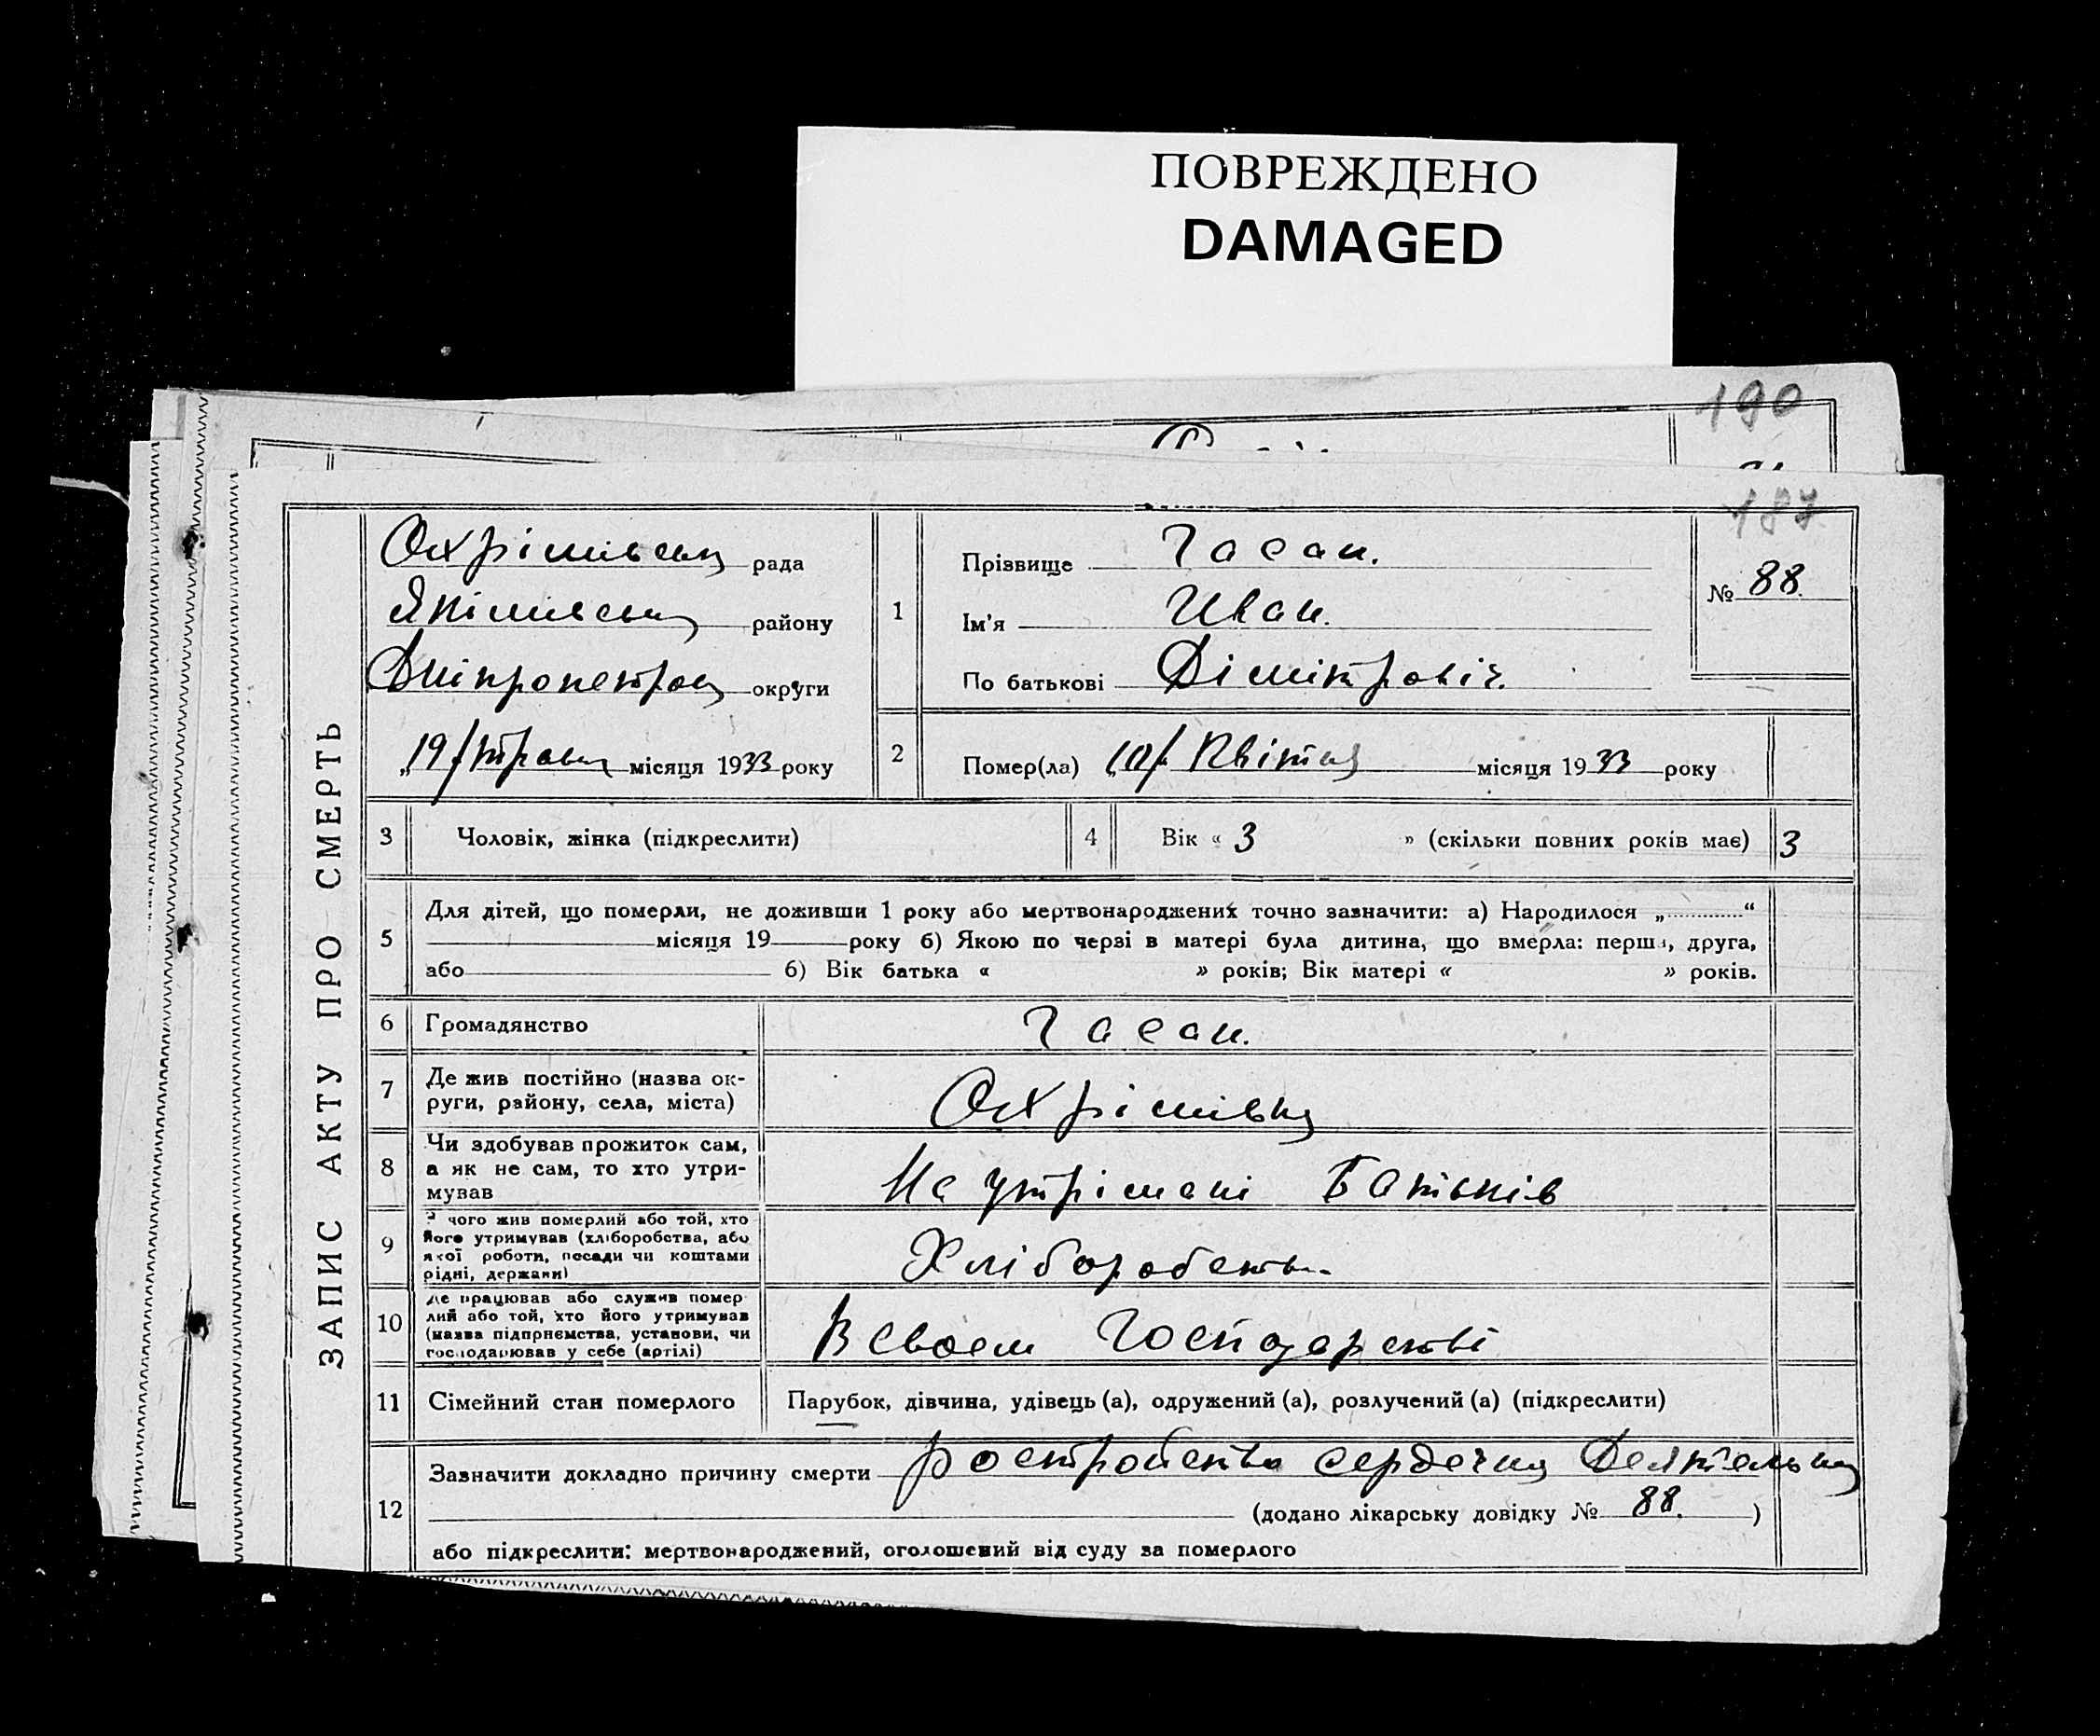 ПОВРЕЖДЕНО
DAMAGED
190
187
ЗАПИС АКТУ ПРО СМЕРТЬ
Охрімівськ рада
Якімівськ району
Дніпропетров округи
„19/ травн місяця 1933 року
1
Прізвище Гасан.
Ім'я Иван.
По батькові Дімітровіч.
№ 88.
2
Помер(ла) 10/ Квітня місяця 1933 року
3 Чоловік, жінка (підкреслити)
4 Вік « 3 » (скільки повних років має) 3
5 Для дітей, що померли, не доживши 1 року або мертвонароджених точно зазначити: а) Народилося „ “
місяця 19 року б) Якою по черзі в матері була дитина, що вмерла: перша, друга,
або б) Вік батька « » років; Вік матері « » років.
6 Громадянство Гасан.
7 Де жив постійно (назва ок-
руги, району, села, міста) Охрімівка
8 Чи здобував прожиток сам,
а як не сам, то хто утри-
мував На утрімані Батьків
9 З чого жив померлий або той, хто
його утримував (хліборобства, або
якої роботи, посади чи коштами
рідні, держави) Хліборобств.
10 Де працював або служив помер
лий або той, хто його утримував
(назва підприємства, установи, чи
господарював у себе (артілі) В своем Господарстві
11 Сімейний стан померлого Парубок, дівчина, удівець (а), одружений (а), розлучений (а) (підкреслити)
12 Зазначити докладно причину смерти ростройство сердечна Деятельн
(додано лікарську довідку № 88. )
або підкреслити: мертвонароджений, оголошений від суду за померлого